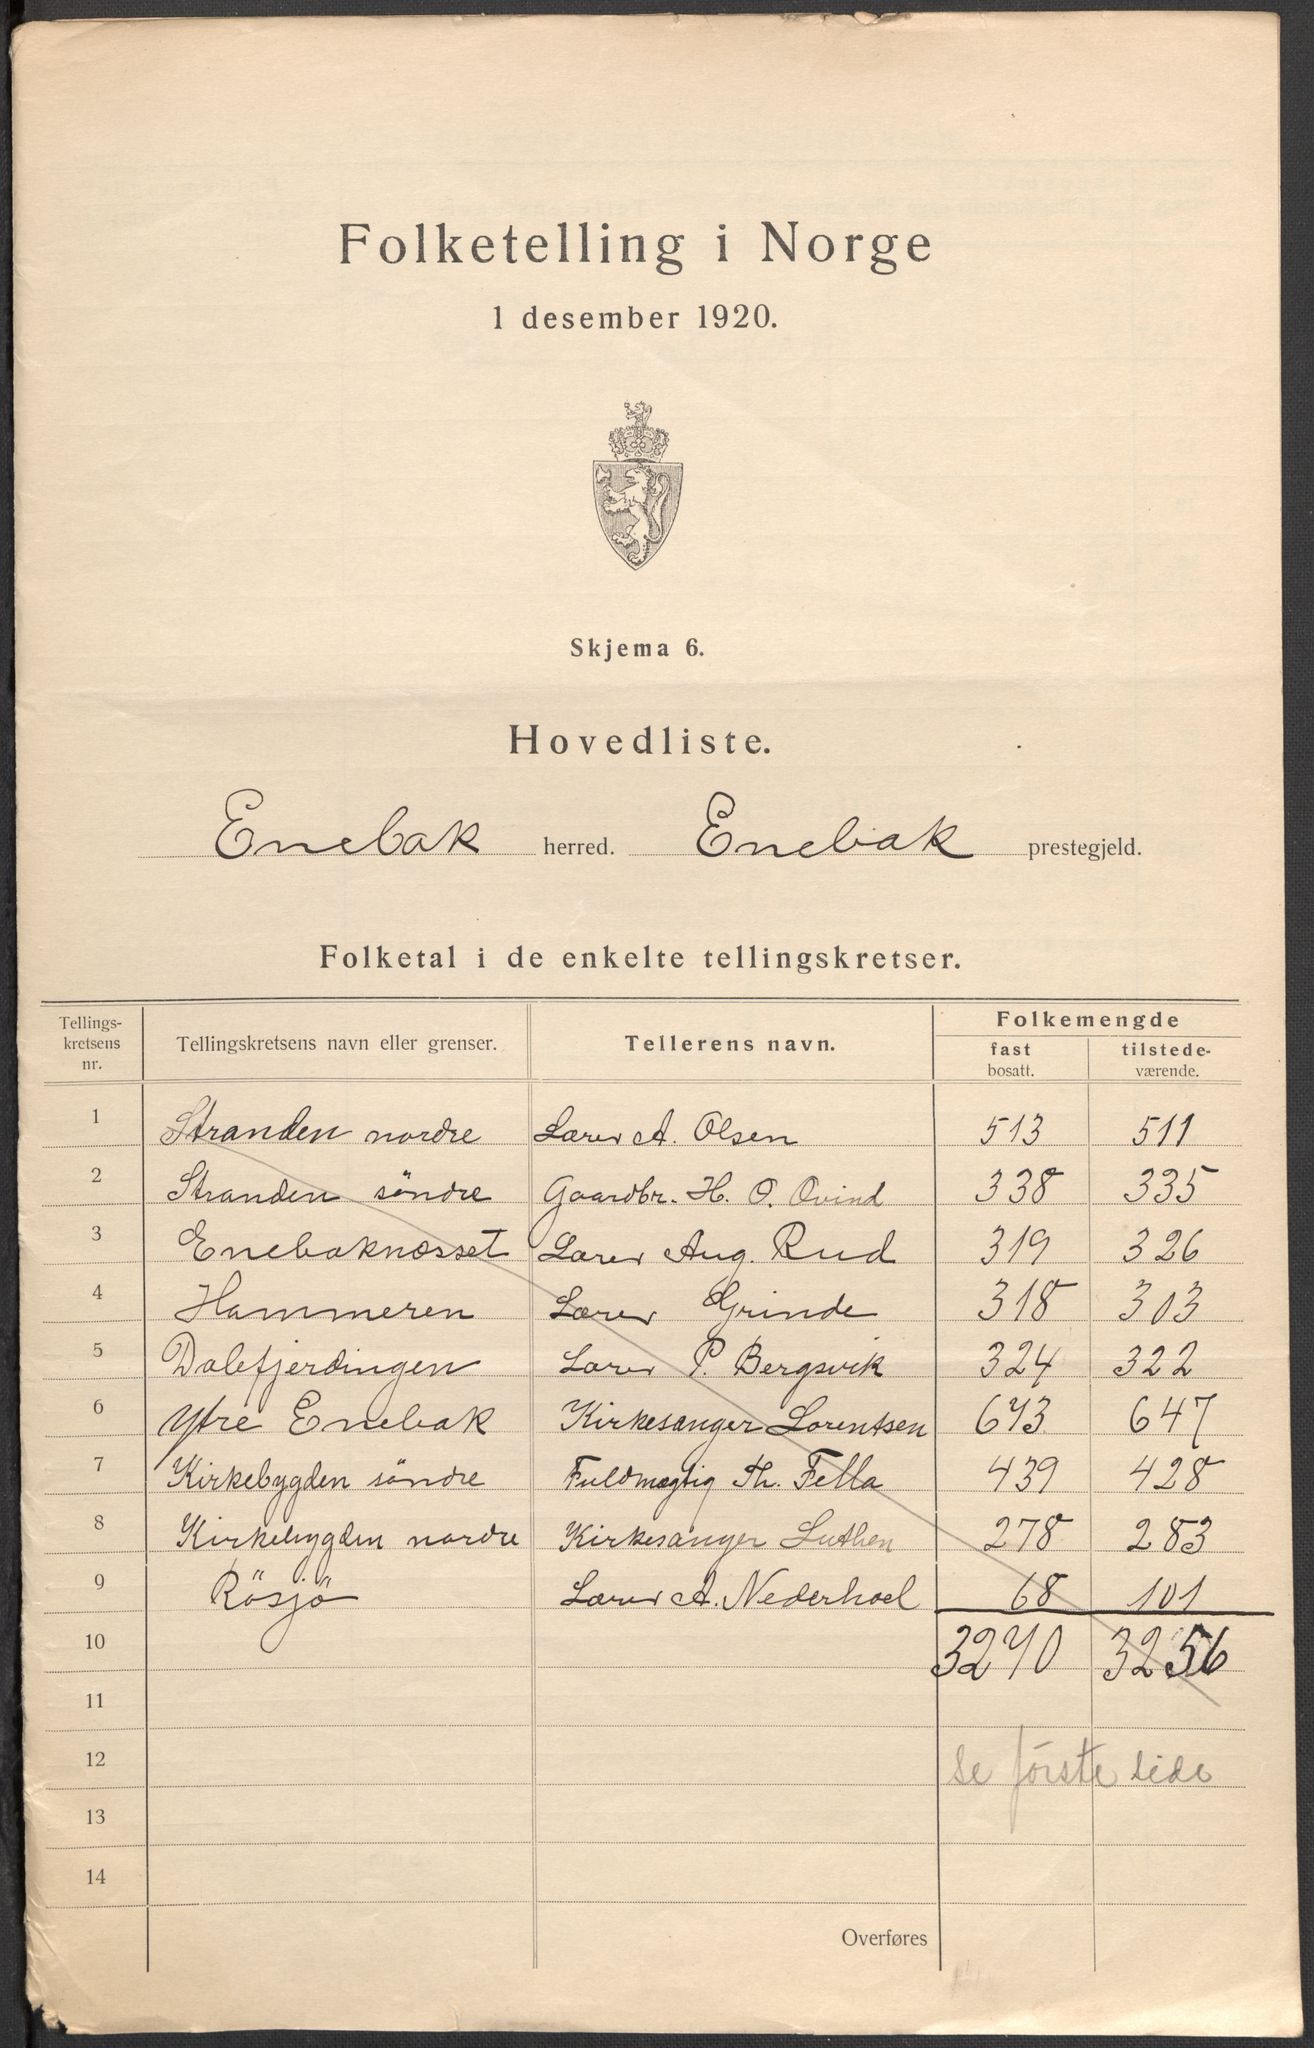 Folketelling i Norge
1 desember 1920.
Skjema 6.
Hovedliste.
Enebak herred. Enebak prestegjeld.
Folketal i de enkelte tellingskretser.
Tellings-
kretsens
nr.
Tellingskretsens navn eller grenser.
Tellerens navn.
Folkemengde
fast
bosatt.
tilstede-
værende.
1 Stranden nordre Lærer A. Olsen 513 511
2 Stranden söndre Gaardbr. H. O. Ovind 338 335
3 Enebaknæsset Lærer Aug. Rud 319 326
4 Hammeren Lærer Grinde 318 303
5 Dalefjerdingen Lærer P. Bergsvik 324 322
6 Ytre Enebak Kirkesanger Lorentsen 673 647
7 Kirkebygden söndre Fuldmægtig Th. Fella 439 428
8 Kirkebygden nordre Kirkesanger Luthen 278 283
9 Rösjö Lærer A. Nederhoel 68 101
10 3270 3256
11
12 Se første side
13
14
Overføres